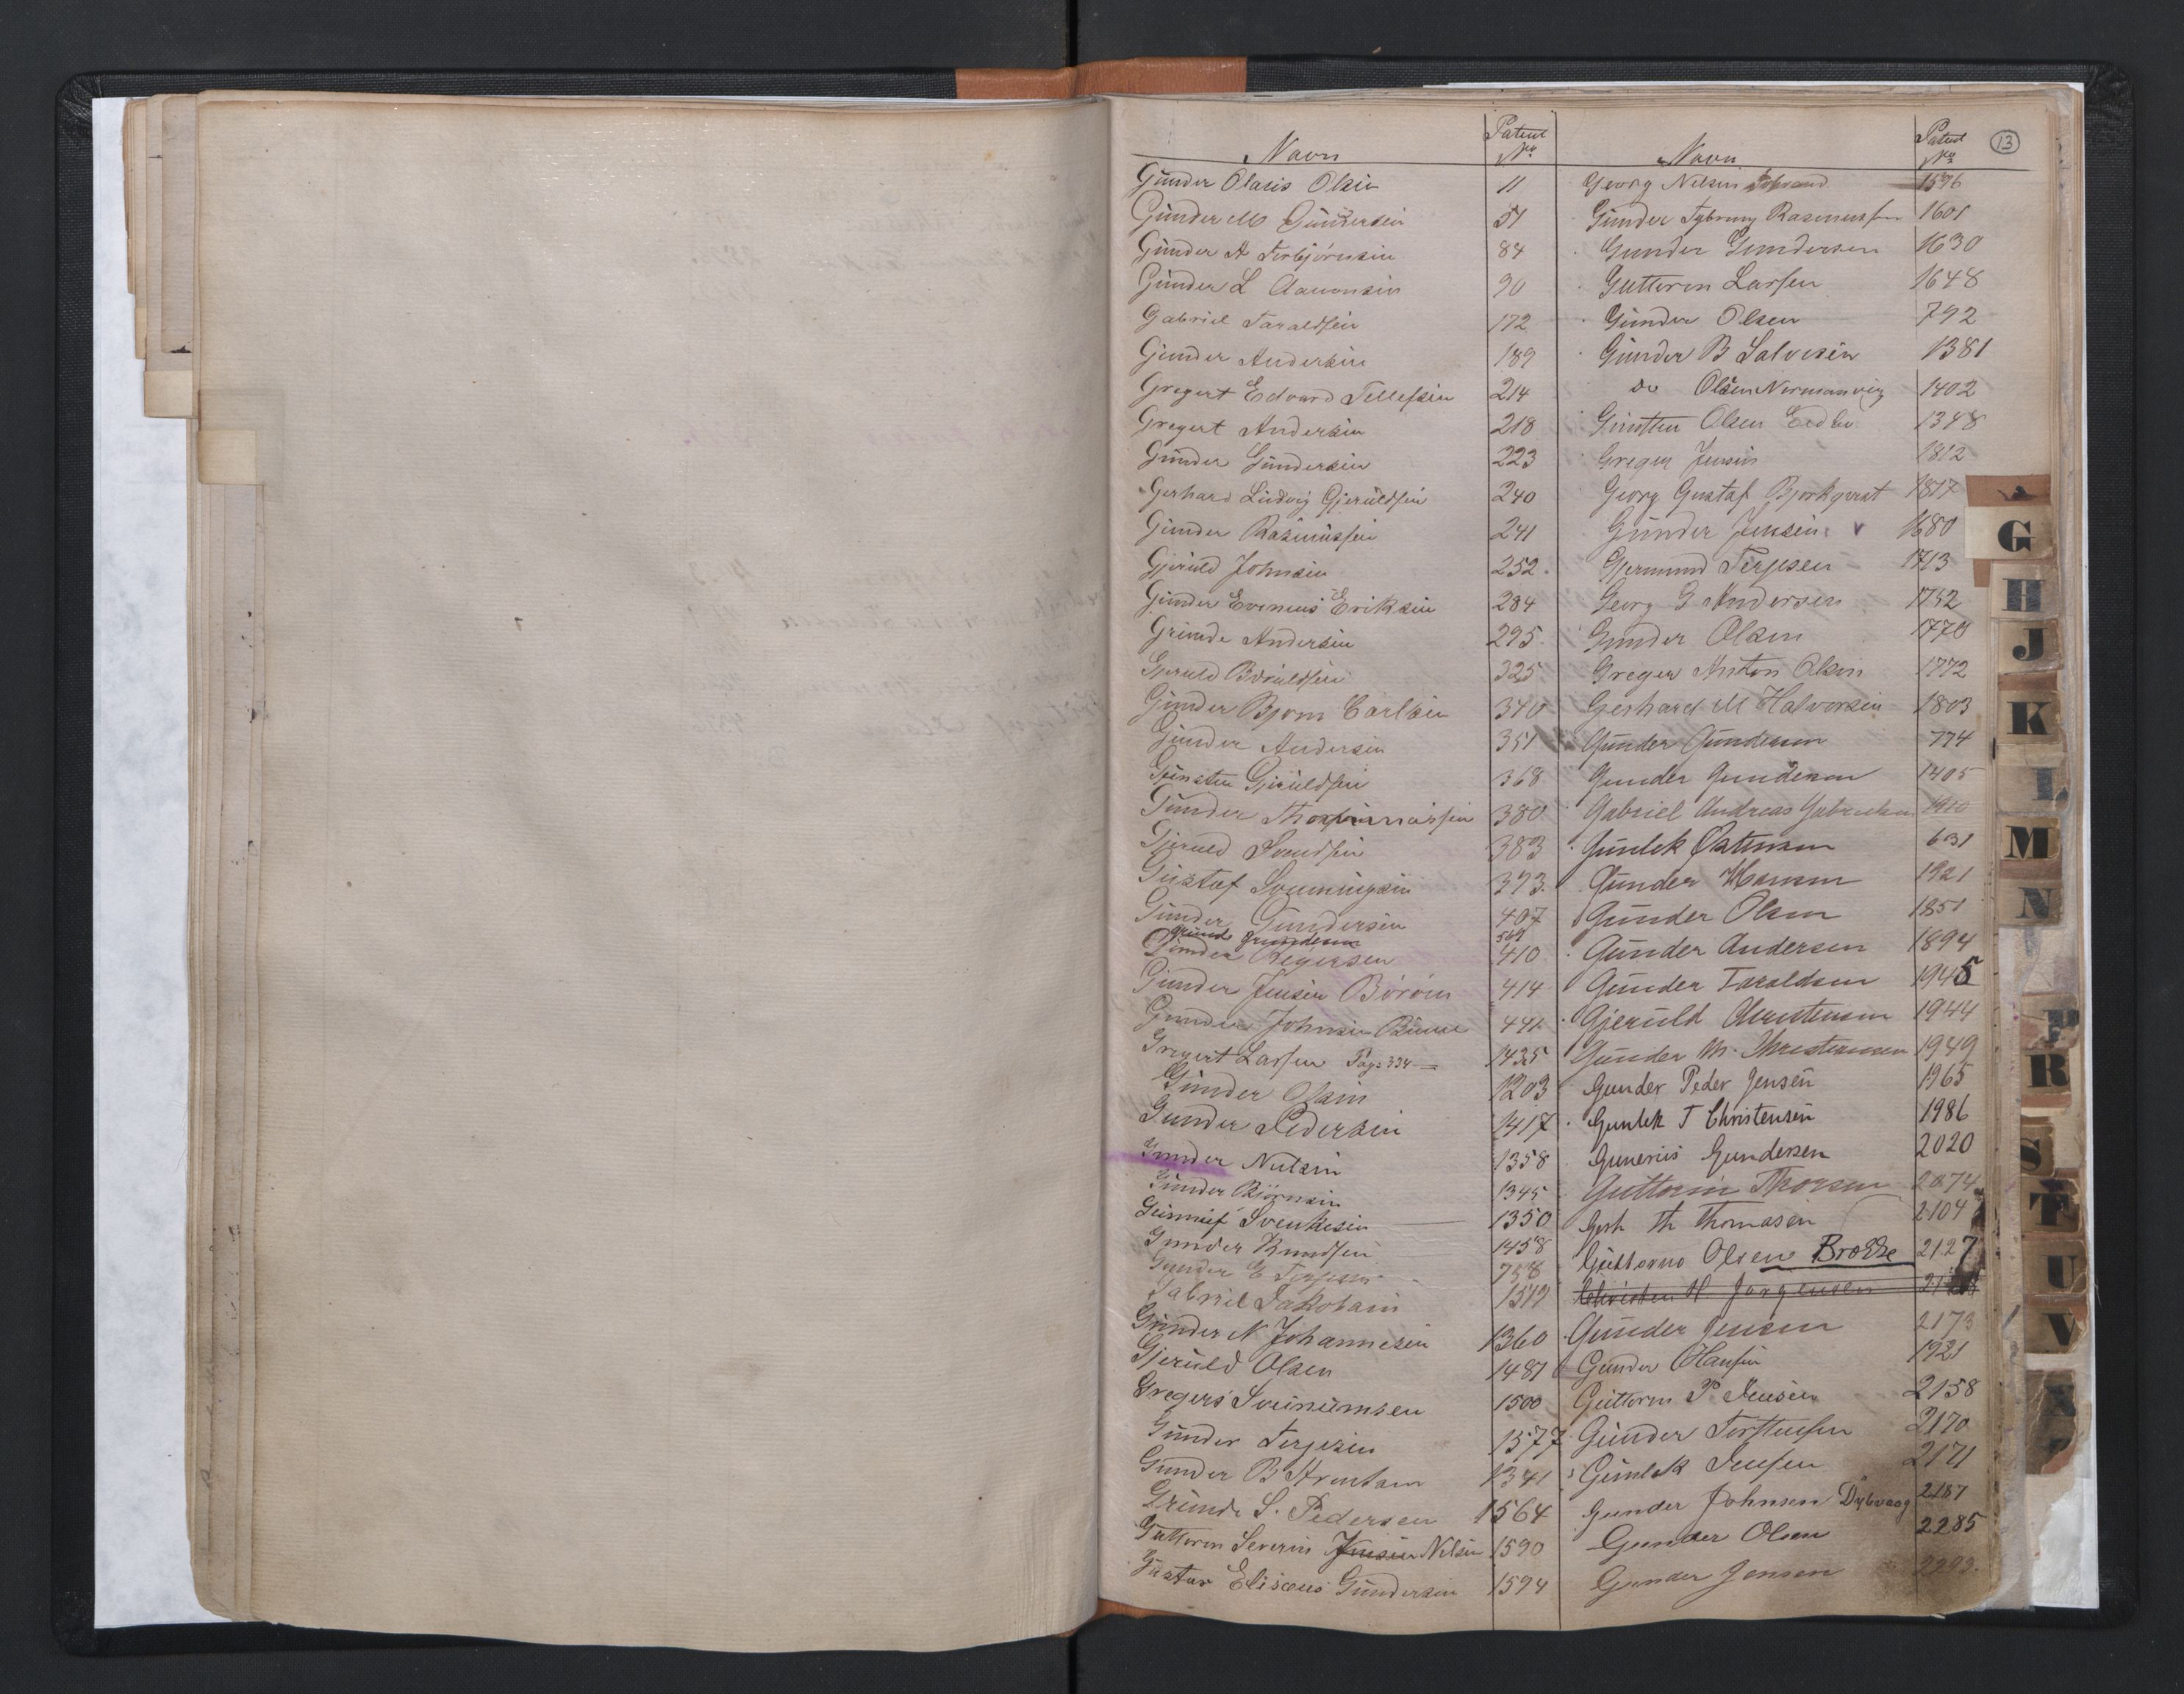 13
Navn Patent No
Gunder Olaus Olsen 11
Gunder M Gundersen 51
Gunder A Torbjørnsen 84
Gunder L Aanonsen 90
Gabriel Taraldsen 172
Gunder Andersen 189
Gregert Edvard Tellefsen 214
Gregert Andersen 218
Gunder Gundersen 223
Gerhard Ludvig Gjeruldsen 240
Gunder Rasmussen 241
Gjeruld Johnsen 252
Gunder Evenius Eriksen 284
Grunde Andersen 295
Gjeruld 325
Gunder Bjørn Carlsen 340
Gunder Andersen 351
Gunsten Gjeruldsen 368
Gunder 380
Gjeruld Svendsen 383
Gustaf Svenningsen 393
Gunder Gundersen 407
Grunde Gundersen 569
Gunder 410
Gunder Jensen 414
Gunder Johnsen 441
Gregert Larsen Pag: 334 1435
Gunder Olsen 1203
Gunder Pedersen 1417
Gunder Nielsen 1358
Gunder Bjørnsen 1345
Svenkesen 1350
Gunder Knudsen 1458
Gunder G Terjesen 758
Gabriel Jakobsen 1519
Gunder N Johannesen 1360
Gjeruld Olsen 1487
Gregers Sveinumsen 1500
Gunder Terjesen 1577
Gunder B 1341
Grunde S. Pedersen 1564
Guttorm Severin Jensen Nilsen 1590
Gustav Elisæus Gundersen 1594
Navn Patent No
Georg Nilsen 1596
Gunder Rasmussen 1601
Gunder Gundersen 1630
Guttorm Larsen 1648
Gunder Olsen 792
Gunder B Salvesen 1381
do Olsen Normanvig 1402
Gunsten Olsen 1348
Greger Jensen 1812
Georg Gustaf Bjorkqvist 1817
Gunder Jensen 1680
Gjermund Terjesen 1713
Georg G Andersen 1752
Gunder Olsen 1770
Greger Anton Olsen 1772
Gerhard M Halvorsen 1803
Gunder Gundersen 774
Gunder Gundersen 1405
Gabriel Andreas Gabrielsen
Gunlek Østensen 631
Gunder Hansen 1921
Gunder Olsen 1851
Gunder Andersen 1894
Gunder Taraldsen 1945
Gjeruld Christensen 1944
Gunder M. Christensen 1949
Gunder Peder Jensen 1965
Gunlek T Christensen 1986
Gunerius Gundersen 2020
Guttorm Thorsen 2074
Gerh Th Thomasen 2104
Guttorm Olsen Brokke 2127
Christen H Jørgensen
Gunder Jensen 2173
Gunder Hansen 1921
Guttorm P. Jensen 2158
Gunder Torstensen 2170
Gunlek Jensen 2171
Gunder Johnsen Dybvaag 2187
Gunder Olsen 2285
Gunder Jensen 2293
G
H
J
K
L
M
N
P
R
S
T
U
V